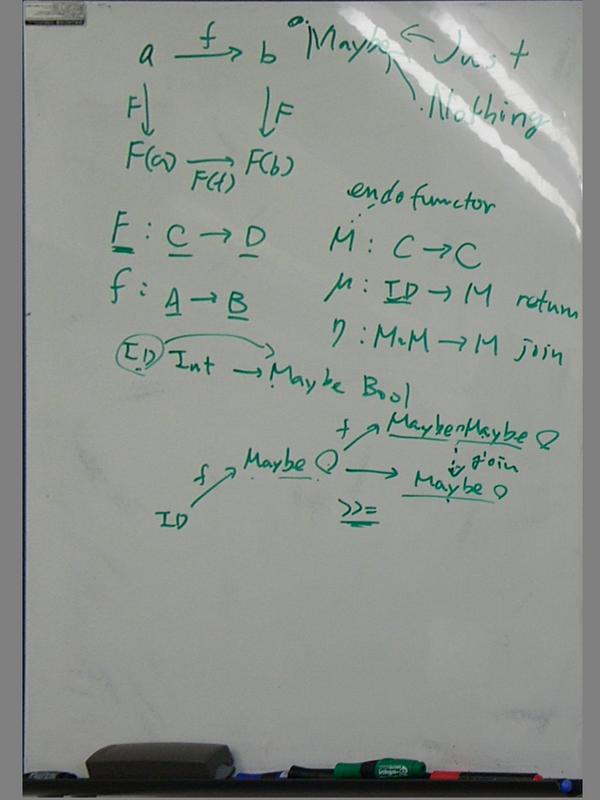 a f→ b
• Maybe ← Just
Nothing
F↓ ↓F
F(a) → F(b)
F(f)
endofunctor
F : C → D
M : C → C
f : A → B
μ : ID → M return
η : M∘M → M join
ID Int → Maybe Bool
f Maybe∘Maybe O
join
f Maybe O → Maybe O
ID
>>=